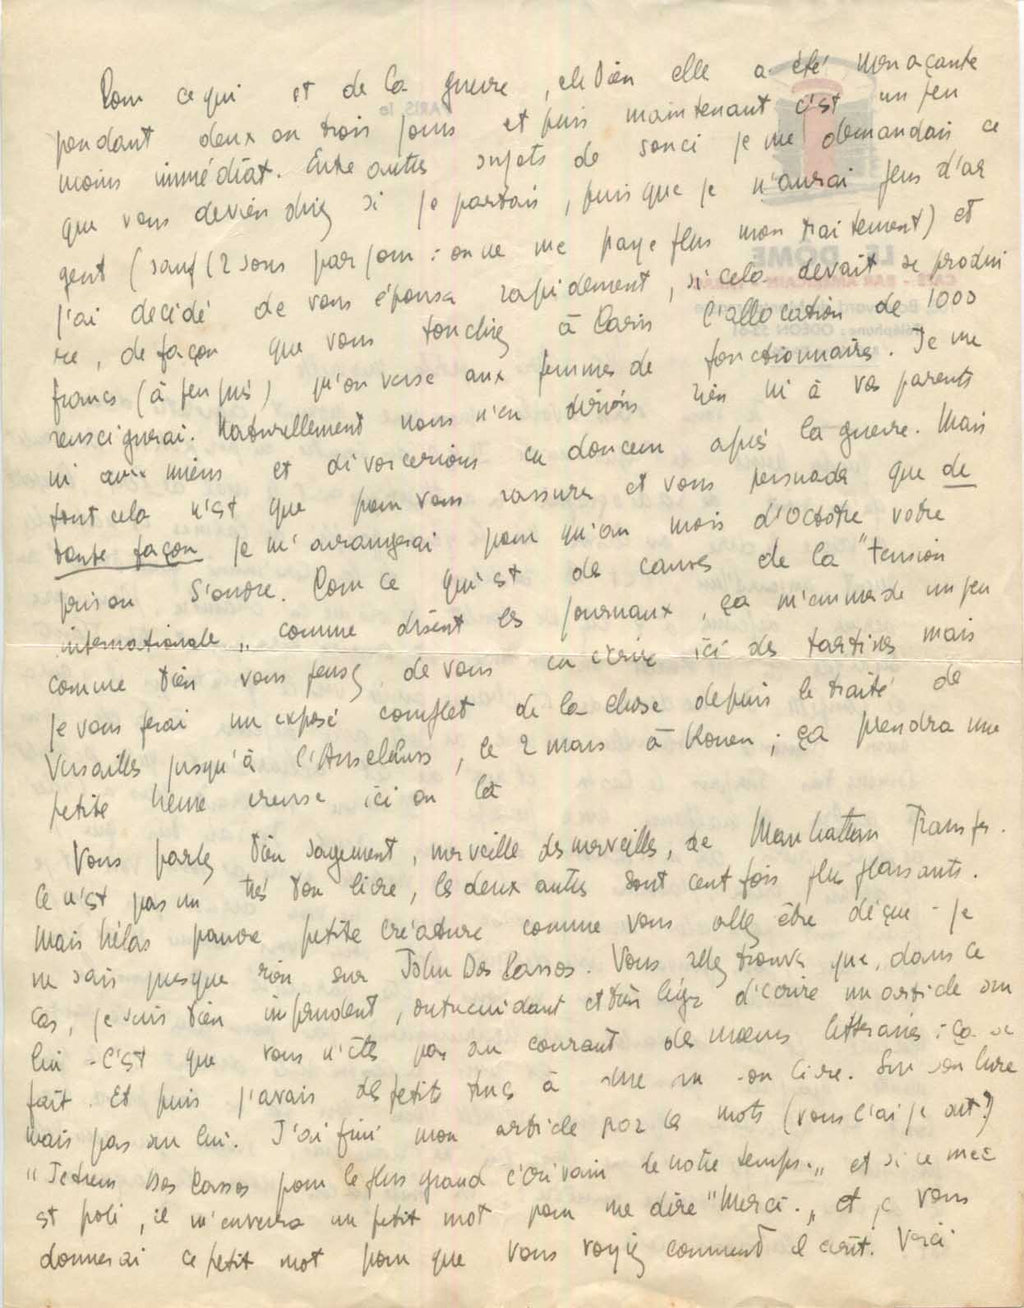 Pour ce qui est de la guerre, eh bien elle a été menaçante
pendant deux ou trois jours et puis maintenant c'est un peu
moins immédiat. Entre autres sujets de souci je me demandais ce
que vous deviendriez si je partais, puisque je n'aurai plus d'ar
gent (sauf 12 sous par jour : on ne me paye plus mon traitement) et
j'ai décidé de vous épouser rapidement, si cela devait se produi
re, de façon que vous touchiez à Paris l'allocation de 1000
francs (à peu près) qu'on verse aux femmes de fonctionnaires. Je me
renseignerai. Naturellement nous n'en dirions rien ni à vos parents
ni aux miens et divorcerions en douceur après la guerre. Mais
tout cela n'est que pour vous rassurer et vous persuader que de
toute façon je m'arrangerai pour qu'au mois d'Octobre votre
prison s'ouvre. Pour ce qui est des causes de la "tension
internationale" comme disent les journaux, ça m'emmerde un peu
comme bien vous pensez de vous en écrire ici des tartines mais
je vous ferai un exposé complet de la chose depuis le traité de
Versailles jusqu'à l'Anschluss, le 2 mars à Rouen ; ça prendra une
petite heure creuse ici ou là
Vous parlez bien sagement, merveille des merveilles, de Manhattan Transfer.
Ce n'est pas un très bon livre, les deux autres sont cent fois plus plaisants.
Mais hélas pauvre petite créature comme vous allez être déçue - je
ne sais presque rien sur John Dos Passos. Vous allez trouver que, dans ce
cas, je suis bien imprudent, outrecuidant et bien léger d'écrire un article sur
lui - C'est que vous n'êtes pas au courant des mœurs littéraires : ça se
fait. Et puis j'avais des petits trucs à dire sur son livre. Sur son livre
mais pas sur lui. J'ai fini mon article par ces mots (vous l'ai-je dit ?)
"Je tiens Dos Passos pour le plus grand écrivain de notre temps." et si ce mec
est poli, il m'enverra un petit mot pour me dire "Merci." et je vous
donnerai ce petit mot pour que vous voyiez comment il écrit. Voici